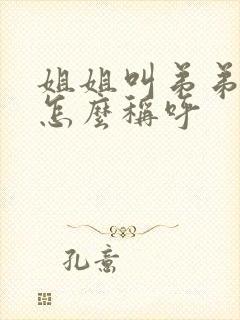 姐姐叫弟弟
怎麼稱呼
孔意